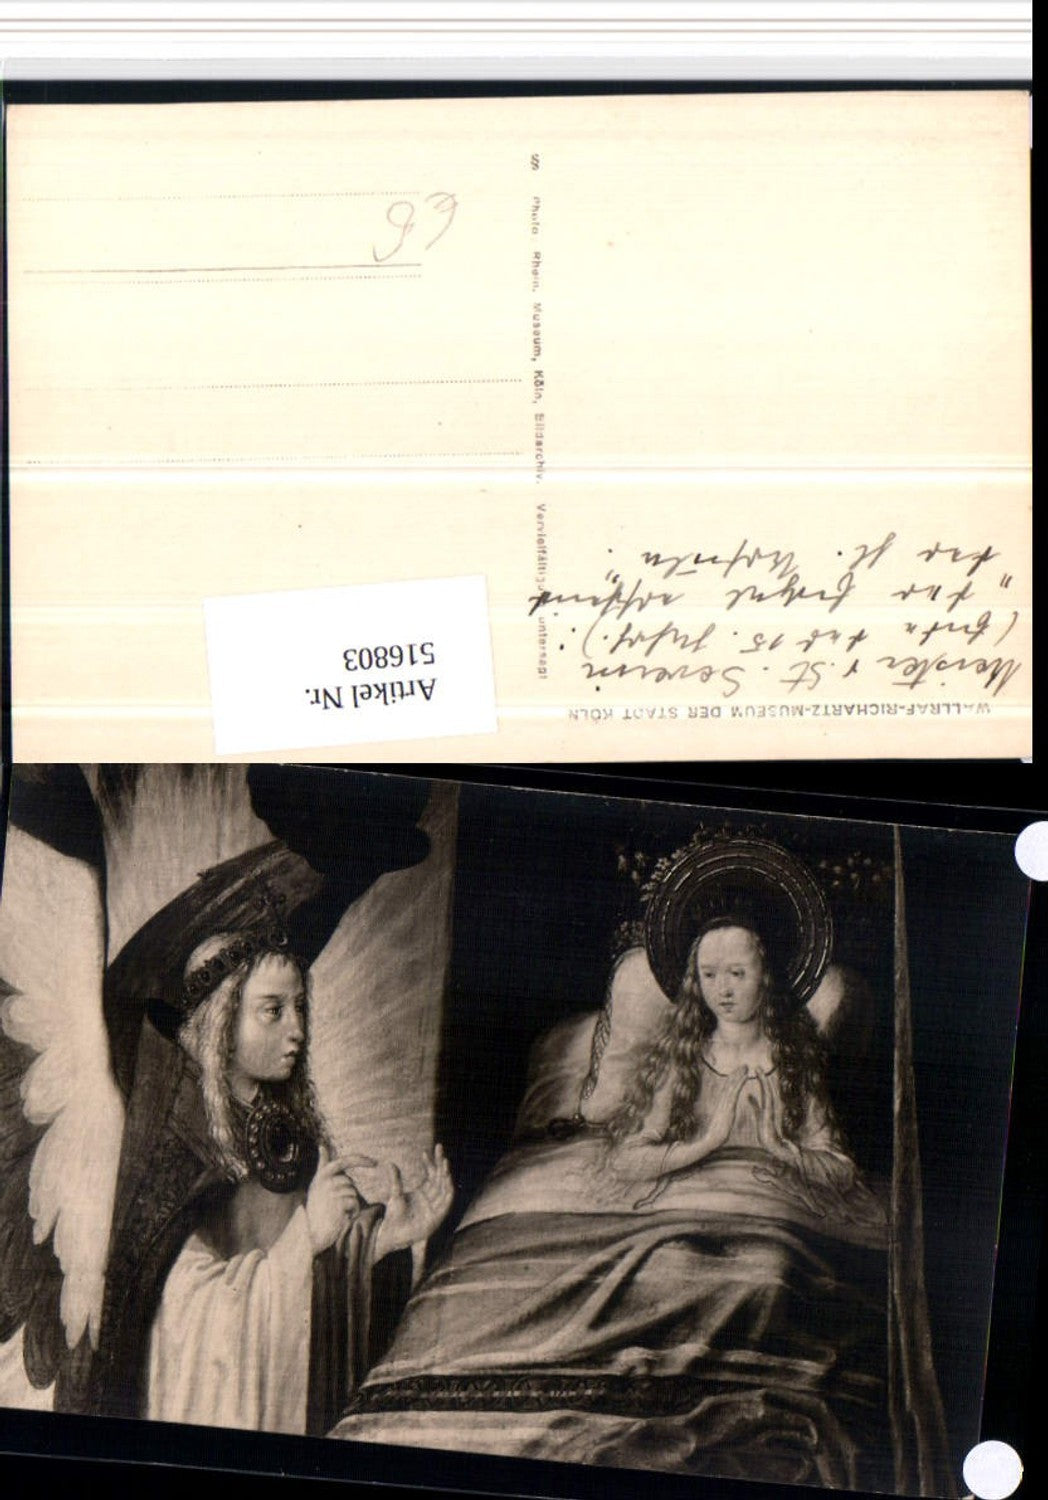 WALLRAF-RICHARTZ-MUSEUM DER STADT KÖLN
Meister v. St. Severin
(Ende des 15. Jahrh.):
"der Engel erscheint
der hl. Ursula".
Photo Rhein. Museum, Köln, Bildarchiv. Vervielfältigung untersagt
Artikel Nr.
516803